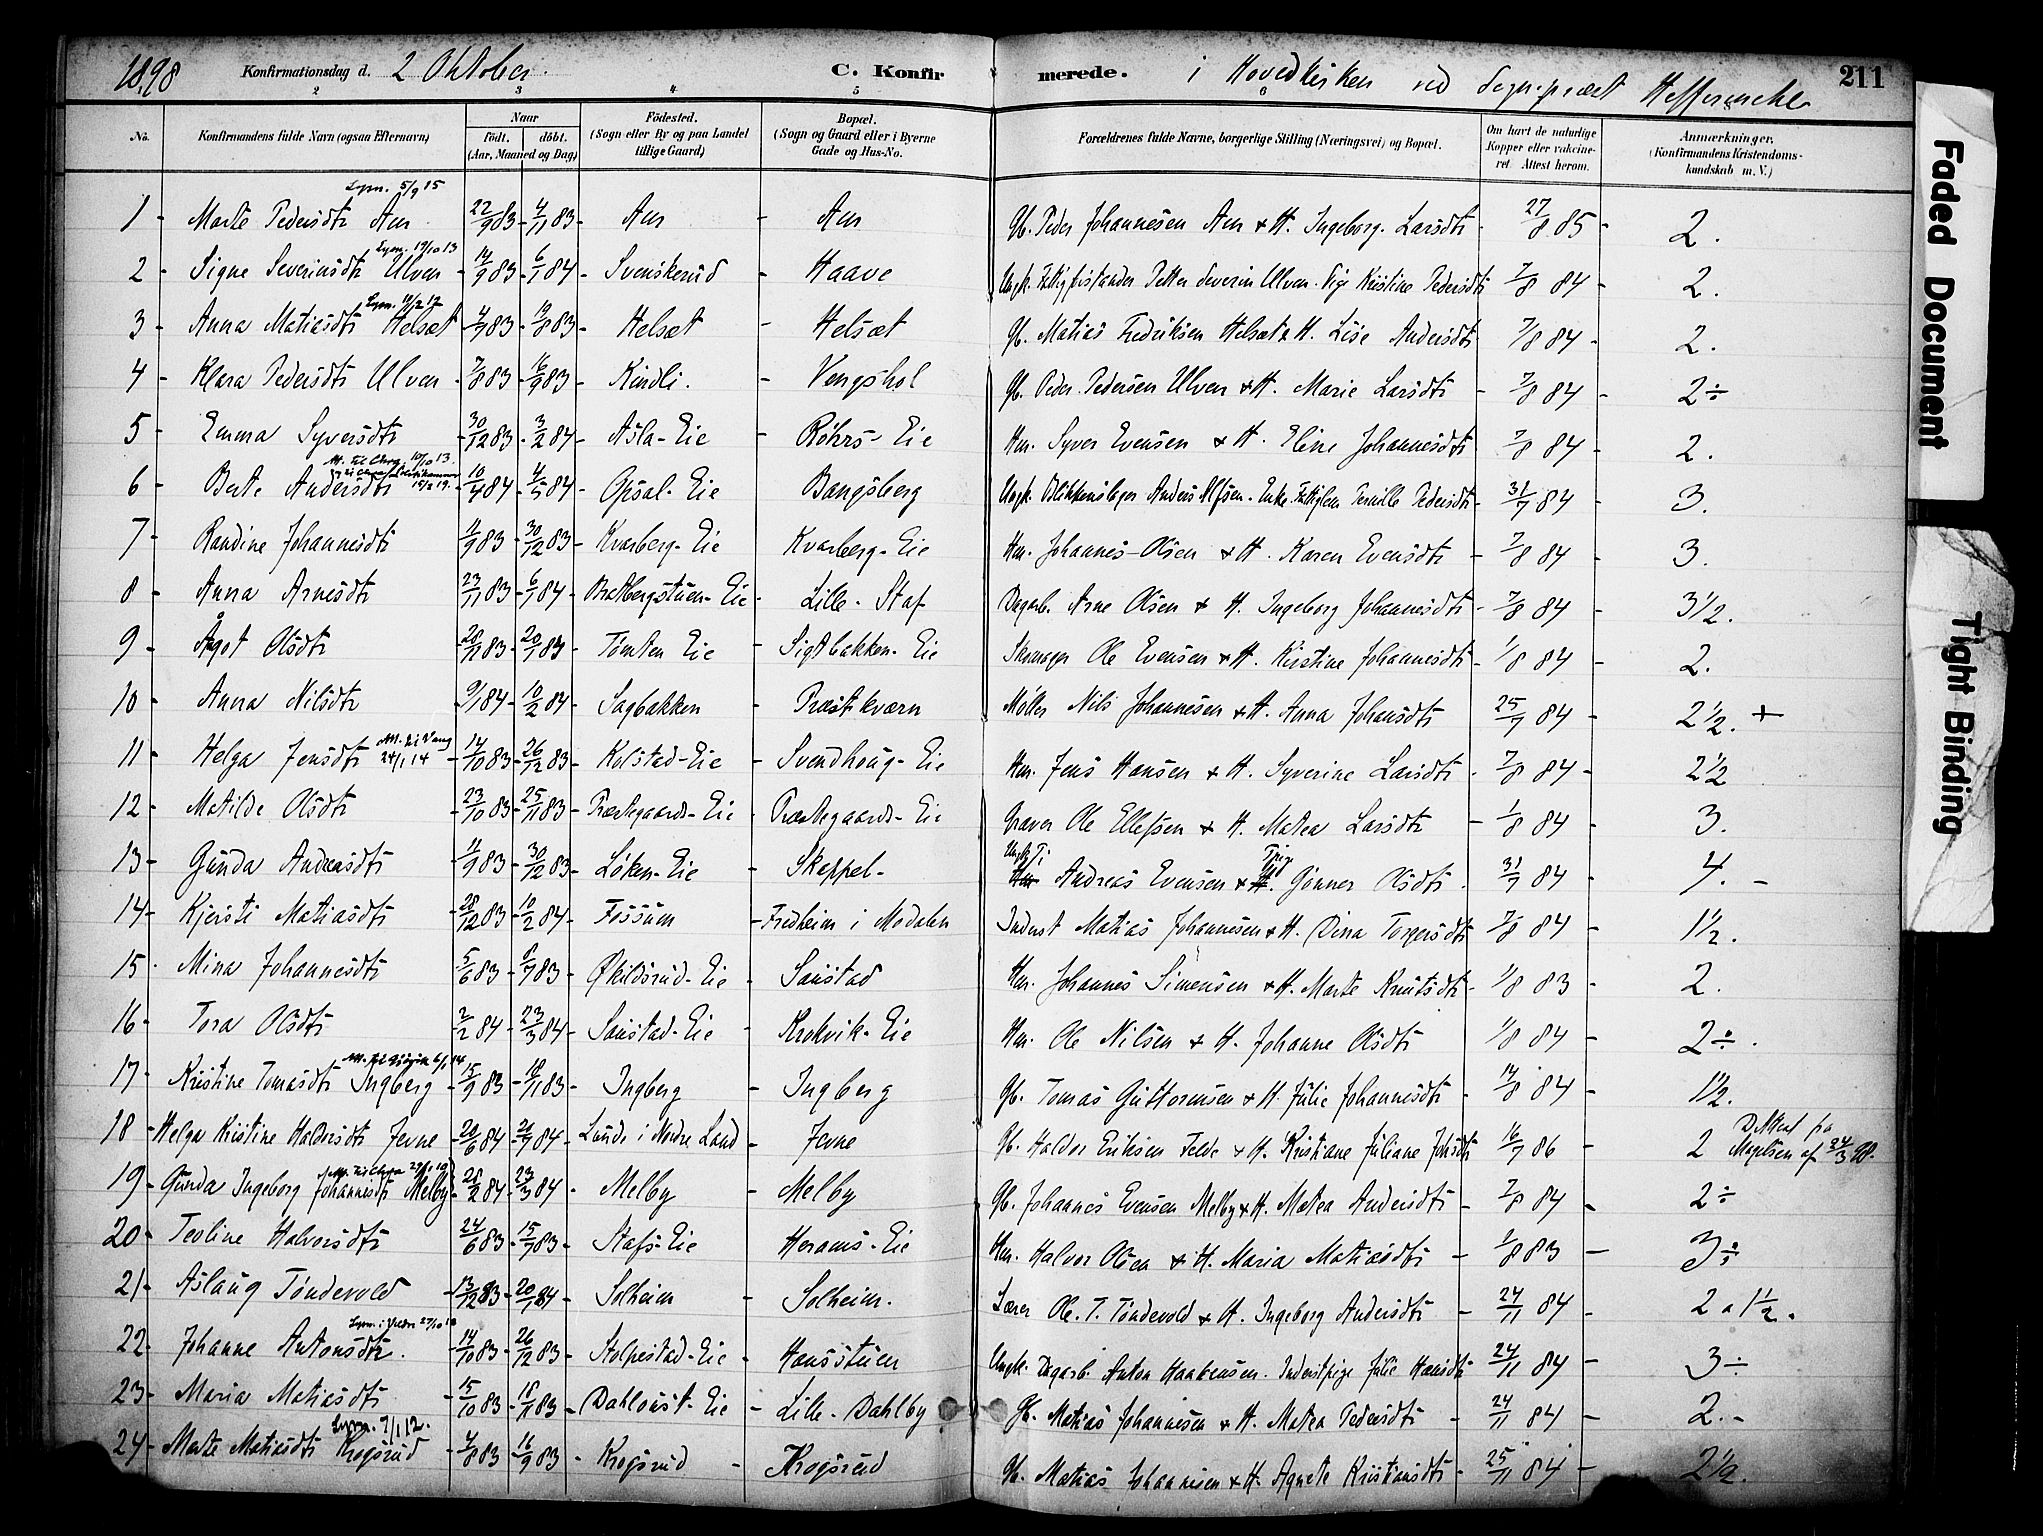 1898 Konfirmationsdag d. 2 Oktober. C. Konfirmerede. i Hovedkirken ved Sognepræst 211
2 3 4 5 6
No. Konfirmandens fulde Navn (ogsaa Efternavn) Naar født. døbt. (Aar, Maaned og Dag) Fødested. (Sogn eller By og paa Landet tillige Gaard) Bopæl. (Sogn og Gaard eller i Byerne Gade og Hus-No. Forældrenes fulde Navne, borgerlige Stilling (Næringsvei) og Bopæl. Om havt de naturlige Kopper eller vaccineret. Attest herom. Anmærkninger. (Konfirmandens Kristendomskundskab m. V.)
Lysn. 5/9 15
1 - Marte Pedersdtr Aur 22/9 83 - 4/11 83 - Aur - Aur Gb. Peder Johannesen Aur & H. Ingeborg Larsdtr 27/8 85 - 2.
Lysn. 19/10 13
2 - Signe Severinsdtr Ulven 14/9 83 - 6/1 84 - Svenskerud - Haave Ungk. Petter Severin Ulven. Pige Kristine Pedersdtr 7/8 84 - 2.
3 - Anna Matiasdtr Helset 4/7 83 - 19/8 83 - Helset - Helset Gb. Matias Fredriksen Helset & H. Lise Andersdtr 7/8 84 - 2.
4 - Klara Pedersdtr Ulven 7/8 83 - 16/9 83 - Kindli. - Vengshol Gb. Peder Pedersen Ulven & H. Marie Larsdtr 7/8 84 - 2÷
5 - Emma Syversdtr 30/12 83 - 3/2 84 - Asla-Eie - Røhrs-Eie Hm. Syver Evensen & H. Eline Johannesdtr 7/8 84 - 2.
6 - Berte Andersdtr 10/4 84 - 4/5 84 - Opsal-Eie - Bangsberg Ungk. Blikkenslager Anders Alfsen. Enke Pernille Pedersdtr 31/7 84 - 3.
7 - Randine Johannesdtr 11/9 83 - 30/12 83 - Kvarberg-Eie - Kvarberg-Eie Hm. Johannes Olsen & H. Karen Evensdtr 7/8 84 - 3.
8 - Anna Arnesdtr 23/11 83 - 6/1 84 - Bratbergstuen-Eie - Lille-Staf Dagarb. Arne Olsen & H. Ingeborg Johannesdtr 7/8 84 - 3½.
9 - Ågot Olsdtr 83 - 20/1 83 - Tomten Eie - Sigtbakken-Eie Skomager Ole Evensen & H. Kirstine Johannesdtr 1/8 84 - 2.
10 - Anna Nilsdtr 9/1 84 - 10/2 84 - Sagbakken - Præstkværn Møller Nils Johannesen & H. Anna Johansdtr 25/7 84 - 2½. +
11 - Helga Jensdtr Att. til Vang 24/1 14 14/10 83 - 26/12 83 - Kolstad-Eie - Svendhoug-Eie Hm. Jens Hansen & H. Syverine Larsdtr 7/8 84 - 2½
12 - Matilde Olsdtr 23/10 83 - 25/11 83 - Præstegaards-Eie - Præstegaards-Eie Graver Ole Ellefsen & H. Matea Larsdtr 1/8 84 - 3.
13 - Gunda Andreasdtr 11/9 83 - 30/12 83 - Løken-Eie - Skeppel- Andreas Evensen & Gønner Olsdtr 31/7 84 - 4. -
14 - Kjersti Matiasdtr 28/12 83 - 10/2 84 - Fossum - Fredheim i Modalen Inderst Matias Johannesen & H. Dina Torgersdtr 7/8 84 - 1½.
15 - Mina Johannesdtr 5/6 83 - 8/7 83 - Økildsrud-Eie - Saustad Hm. Johannes Simensen & H. Marte Knutsdtr 1/8 83 - 2.
16 - Tora Olsdtr 2/2 84 - 23/3 84 - Saustad-Eie - Krokvik-Eie Hm. Ole Nilsen & H. Johanne Olsdtr 1/8 84 - 2÷.
17 - Kristine Tomasdtr Ingberg 15/9 83 - 18/11 83 - Ingberg - Ingberg Gb. Tomas Guttormsen & H. Julie Johannesdtr 14/8 84 - 1½.
18 - Helga Kristine Haldorsdtr Jevne 20/6 84 - 20/7 84 - Lunde i Nordre Land - Jevne Gb. Haldor Eriksen & H. Kristiane Juliane 16/7 86 - 2
19 - Gunda Ingeborg Johannesdtr Melby 28/2 84 - 23/3 84 - Melby - Melby Gb. Johannes Evensen Melby & H. Matea Andersdtr 7/8 84 - 2÷
20 - Teoline Halvorsdtr 24/6 83 - 15/7 83 - Stafs-Eie - Horams-Eie Hm. Halvor Olsen & H. Maria Matiasdtr 1/8 83 - 3÷
21 - Aslaug Tøndevold 13/12 83 - 20/1 84 - Solheim - Solheim. Lærer Ole T. Tøndevold & H. Ingeborg Andersdtr 24/11 84 - 2 a 1½.
22 - Johanne Antonsdtr. 14/10 83 - 26/12 83 - Stolpestad-Eie - Hansstuen Ungk. Dagarb. Anton Haakensen. Inderstpige Julie Hansdtr 24/11 84 - 3÷
23 - Maria Matiasdtr 15/10 83 - 18/11 83 - Dahloust-Eie - Lille-Dahlby Gb. Matias Johannesen & H. Matea Pedersdtr 24/11 84 - 2.-
Lysn. 7/1 12.
24 - Marte Matiasdtr Krogsrud 4/8 83 - 16/9 83 - Krogsrud - Krogsrud Gb. Matias Johannesen & H. Agnete Kristiansdtr 25/11 84 - 2½.
Faded Document
Tight Binding